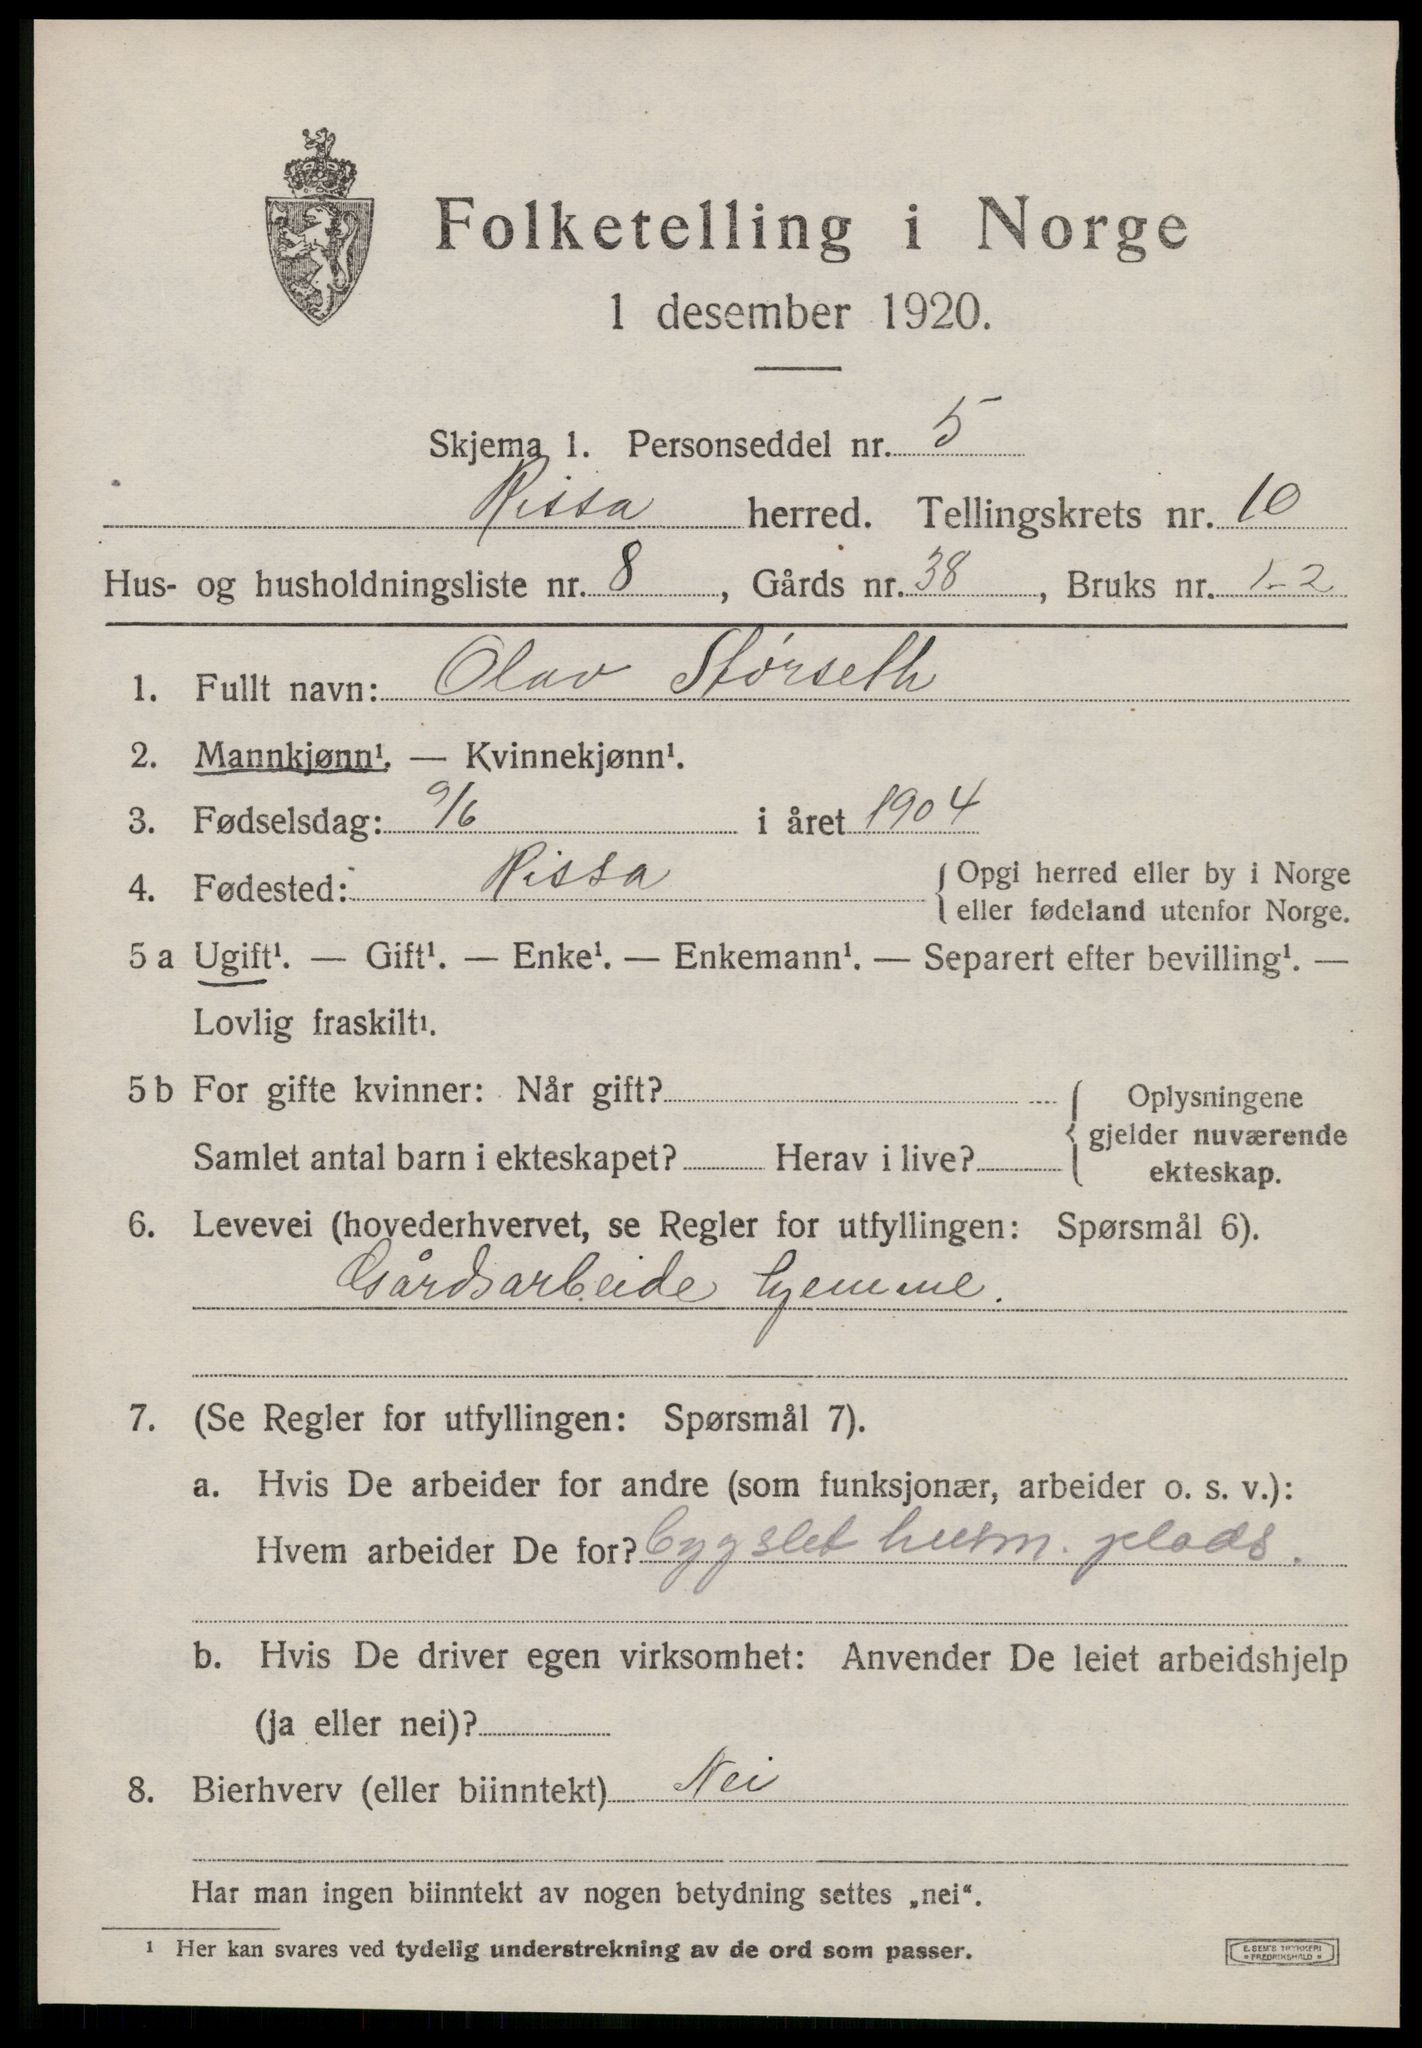 Folketelling i Norge
1 desember 1920.
Skjema 1. Personseddel nr. 5
Rissa herred. Tellingskrets nr. 10
Hus- og husholdningsliste nr. 8, Gårds nr. 38, Bruks nr. 1-2
1. Fullt navn: Olav Størseth
2. Mannkjønn¹. — Kvinnekjønn¹.
3. Fødselsdag: 9/6 i året 1904
4. Fødested: Rissa { Opgi herred eller by i Norge
eller fødeland utenfor Norge.
5 a Ugift¹. — Gift¹. — Enke¹. — Enkemann¹. — Separert efter bevilling¹. —
Lovlig fraskilt¹.
5 b For gifte kvinner: Når gift? { Oplysningene
gjelder nuværende
Samlet antal barn i ekteskapet? Herav i live?
ekteskap.
6. Levevei (hovederhvervet, se Regler for utfyllingen: Spørsmål 6).
Gårdsarbeide hjemme.
7. (Se Regler for utfyllingen: Spørsmål 7).
a. Hvis De arbeider for andre (som funksjonær, arbeider o. s. v.):
Hvem arbeider De for? bygslet husm. plads.
b. Hvis De driver egen virksomhet: Anvender De leiet arbeidshjelp
(ja eller nei)?
8. Bierhverv (eller biinntekt) Nei
Har man ingen biinntekt av nogen betydning settes „nei“.
¹ Her kan svares ved tydelig understrekning av de ord som passer.
E. SEM'S TRYKKERI
* FREDRIKSHALD *